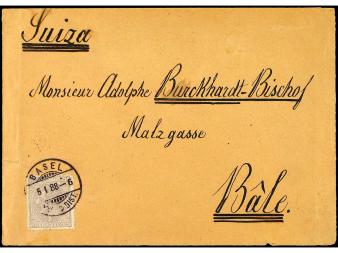 Suiza
Monsieur Adolphe Burckhardt-Bischof
Malzgasse
Bâle.
BASEL
5 I 88 – 6
DIST